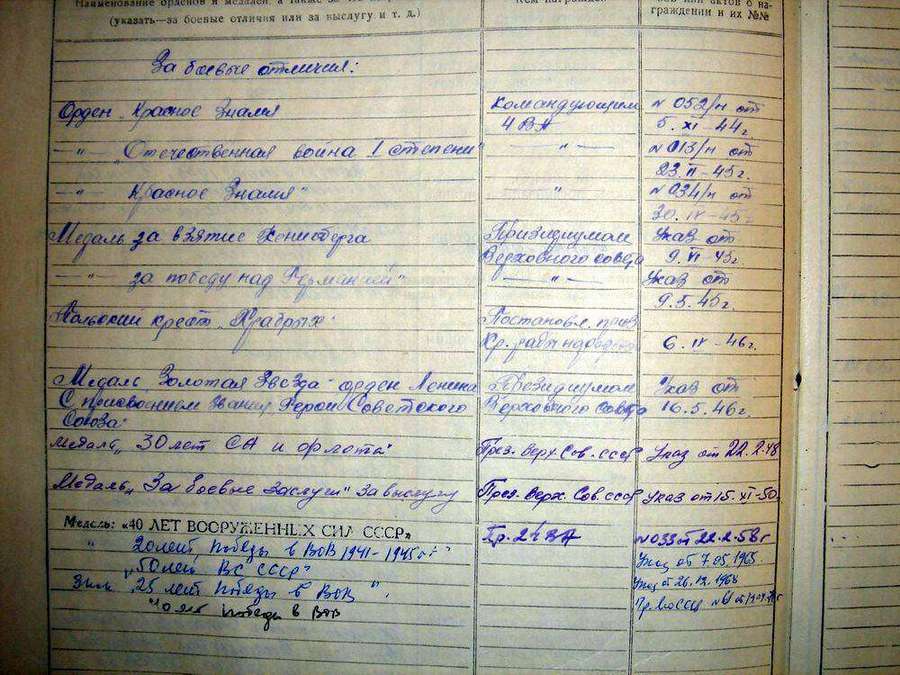 Наименование орденов и медалей, а также за что
(указать—за боевые отличия или за выслугу и т. д.)
Кем награжден
о на-
граждении и их №№
За боевые отличия:
Орден „Красное Знамя Командующим N 052/н от
4 ВА 5. XI-44г.
—"— „Отечественная война I степени" —"— N 013/н от
23. II-45г.
—"— Красное Знамя" " N 034/н от
20. IV-45г
Медаль за взятие Кенисберга Призидиумом Указ от
Верховного совета 9. VI-45г.
—"— за победу над Германией" —"— Указ от
9.5.45г.
Польский крест „Храбрых" Постановл.
6. IV-46г.
Медаль Золотая Звезда" орден Ленина Президиумом Указ от
С присвоением Звания Героя Советского Верховного совета 16.5.46г.
Союза:
Медаль „30 лет СА и флота" През. Верх. Сов. ссср Указ от 22.2.48
Медаль „За боевые заслуги" За выслугу През. Верх. Сов. ссср Указ от 15. XI-50
Медаль: «40 ЛЕТ ВООРУЖЕННЫХ СИЛ СССР» Пр. ВА N 033 от 22.2.58г
" 20 лет Победы в ВОВ 1941-1945гг" Указ от 7.05.1965.
„50 лет ВС СССР" Указ от 26.12.1968
Знак „25 лет Победы в ВОВ".
лет Победы в ВОВ